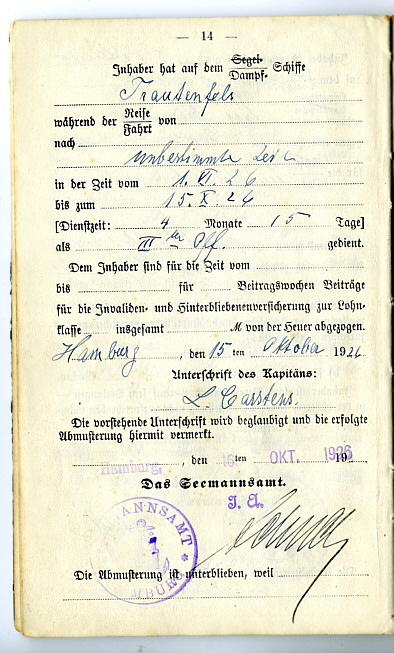 — 14 —
Inhaber hat auf dem Segel- Schiffe
Dampf-
Trautenfels
während der Reise von
Fahrt
nach
unbestimmte
in der Zeit vom 1. VI. 26
bis zum 15. X 26
[Dienstzeit: 4 Monate 15 Tage]
als III ten Off. gedient.
Dem Inhaber sind für die Zeit vom
bis für Beitragswochen Beiträge
für die Invaliden- und Hinterbliebenenversicherung zur Lohn-
klasse insgesamt M von der Heuer abgezogen.
Hamburg, den 15 ten Oktober 1926
Unterschrift des Kapitäns:
L. Carstens.
Die vorstehende Unterschrift wird beglaubigt und die erfolgte
Abmusterung hiermit vermerkt.
Hamburg, den 16 ten OKT. 1926
Das Seemannsamt.
I. A.
ANNSAMT * BURG
Die Abmusterung ist unterblieben, weil